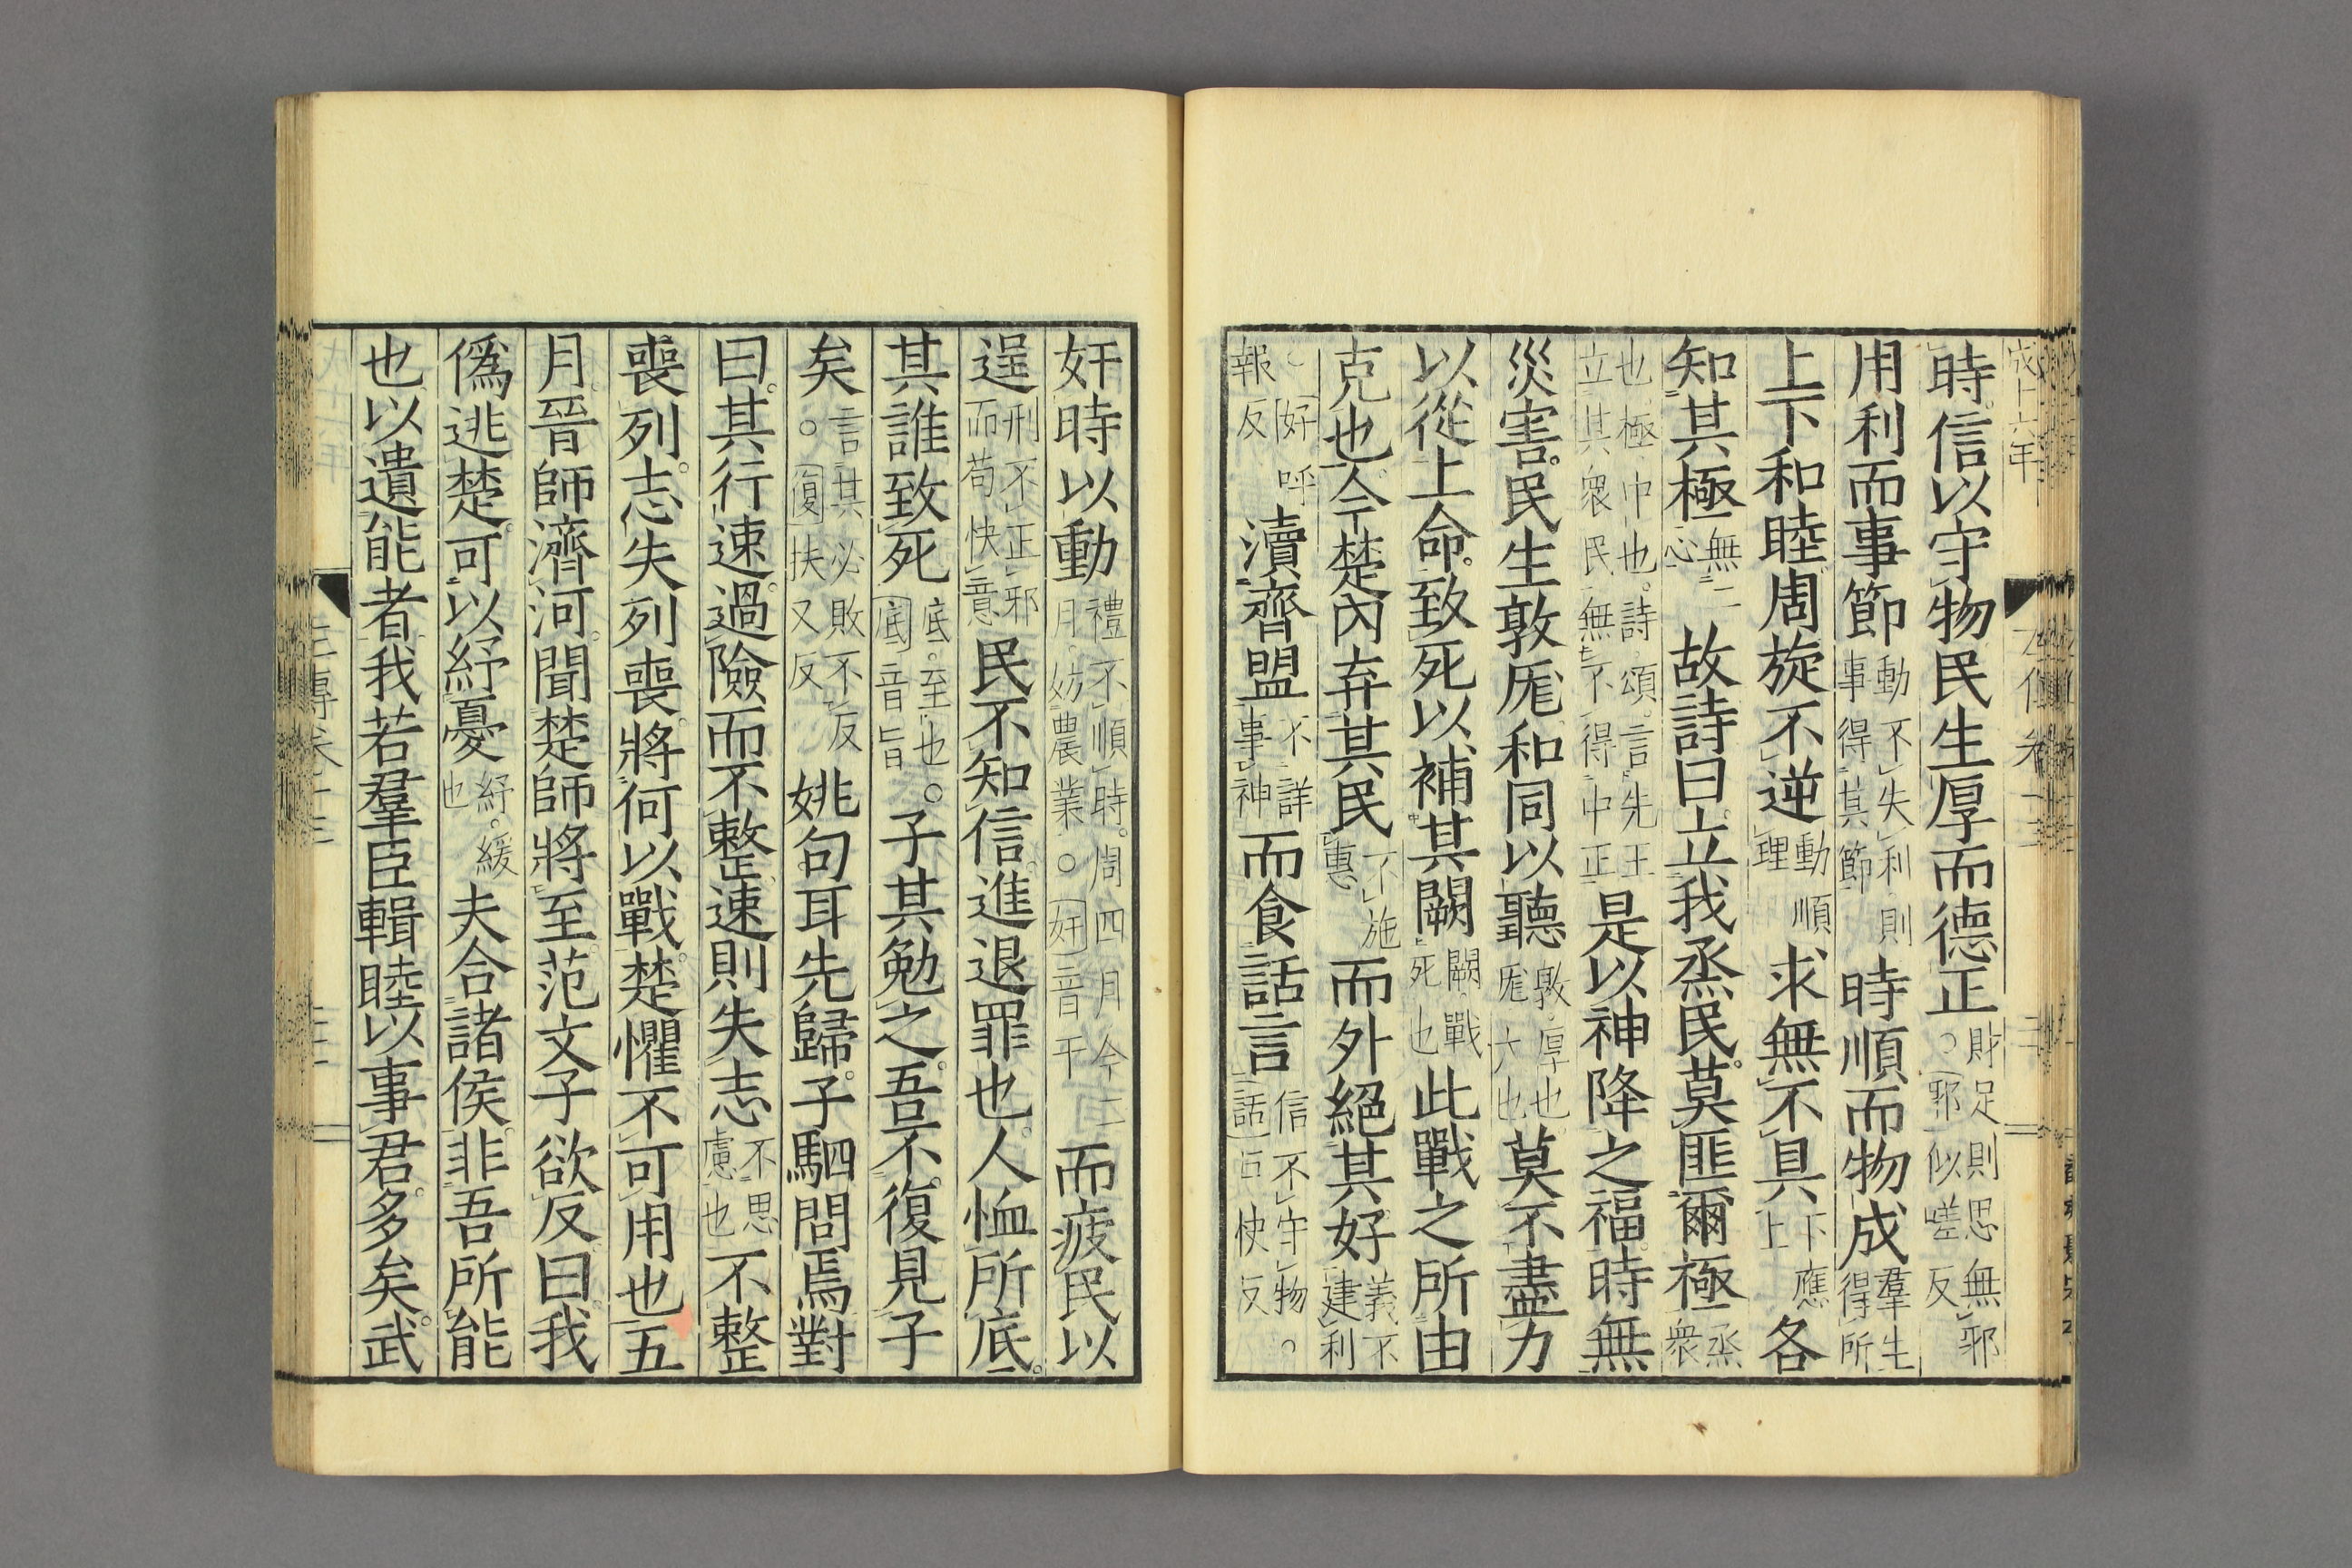 成十六年
時信以守物民生厚而德正財足則思無邪○邪似嗟反
用利而事節動不失利則事得其節時順而物成羣生得所
上下和睦周旋不逆動順理求無不具下應上各
知其極無二心故詩曰立我烝民莫匪爾極烝衆
也極中也詩頌言先王立其衆民無不得中正是以神降之福時無
災害民生敦厖和同以聽敦厚也厖大也莫不盡力
以從上命致死以補其闕闕戰死也此戰之所由
克也今楚內弃其民不施惠而外絕其好義不建利
○好呼報反瀆齊盟不詳事神而食話言信不守物○話戶快反
奸時以動禮不順時周四月今二月妨農業○奸音干而疲民以
逞刑不正邪而苟快意民不知信進退罪也人恤所底
其誰致死底至也○底音旨子其勉之吾不復見子
矣言其必敗不反○復扶又反姚句耳先歸子駟問焉對
曰其行速過險而不整速則失志不思慮也不整
喪列志失列喪將何以戰楚懼不可用也五
月晉師濟河聞楚師將至范文子欲反曰我
僞逃楚可以紓憂紓緩也夫合諸侯非吾所能
也以遺能者我若羣臣輯睦以事君多矣武